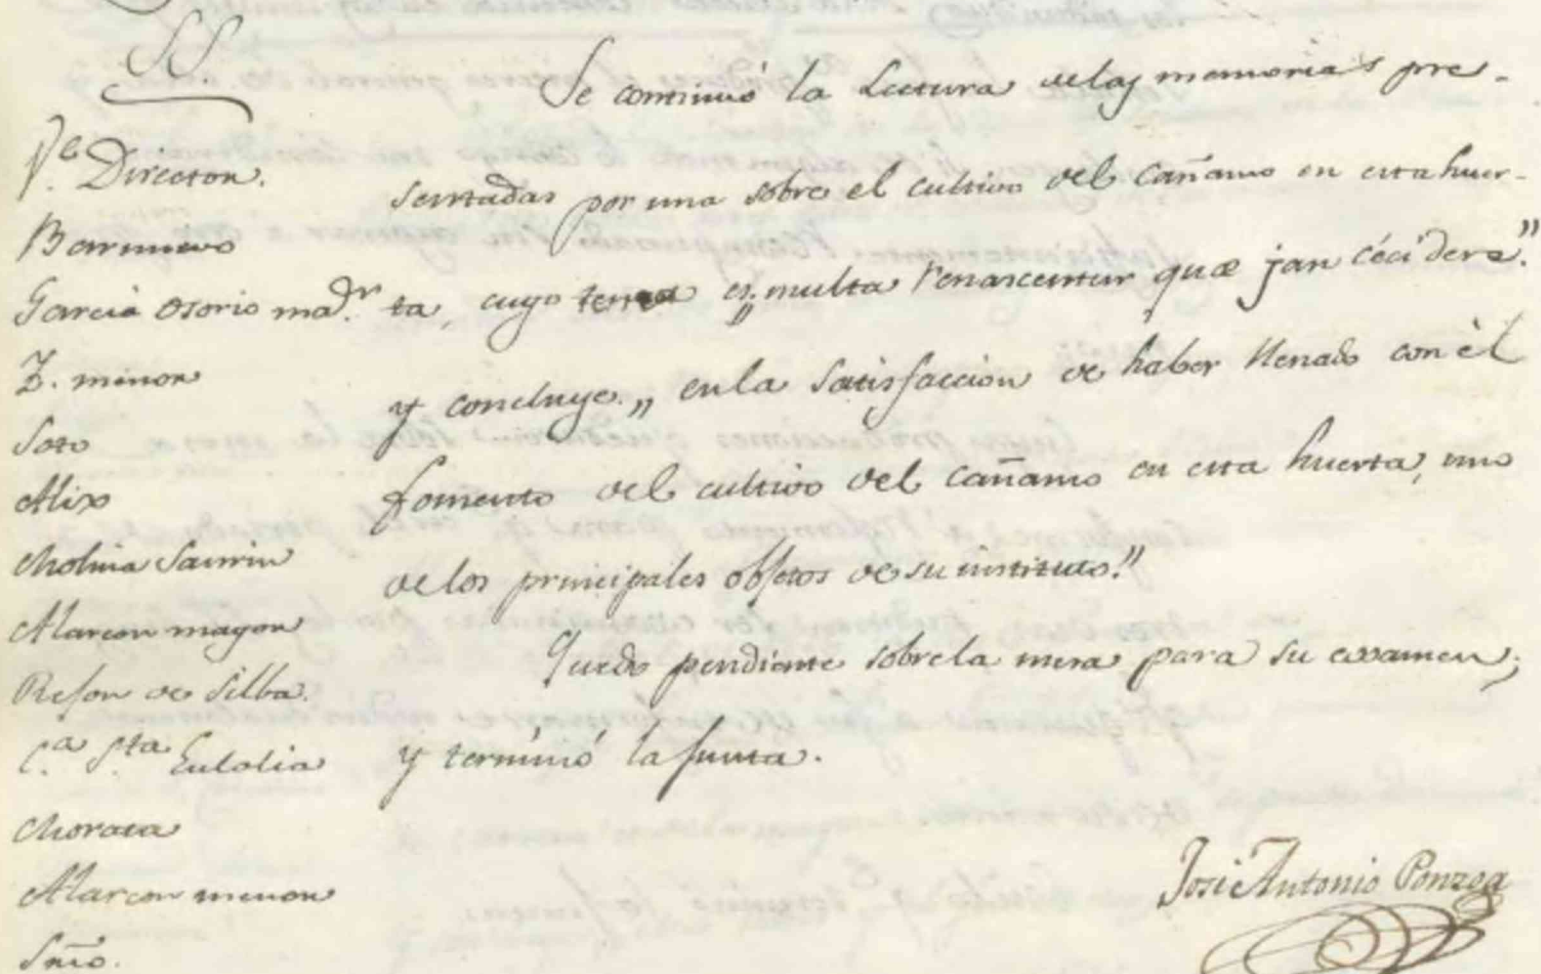 SS.
V.e Director.
Barnuevo
Garcia Osorio mad.r
Z. menor
Soto
Alix
Molina Saurin
Alarcon mayor
Rejon de Silba.
C.a S.ta Eulalia
Morata
Alarcon menor
Srio.
Se continuó la Lectura delas memorias pre-
sentadas por una sobre el cultivo del cañamo en esta huer-
ta, cuyo tema es „ multa renascentur quæ jan cécidere."
y concluye. „ en la satisfaccion de haber llenado con èl
fomento del cultivo del cañamo en esta huerta, uno
delos principales objetos de su instituto."
Quedó pendiente sobrela mesa para su examen;
y términó la Junta.
José Antonio Ponzoa